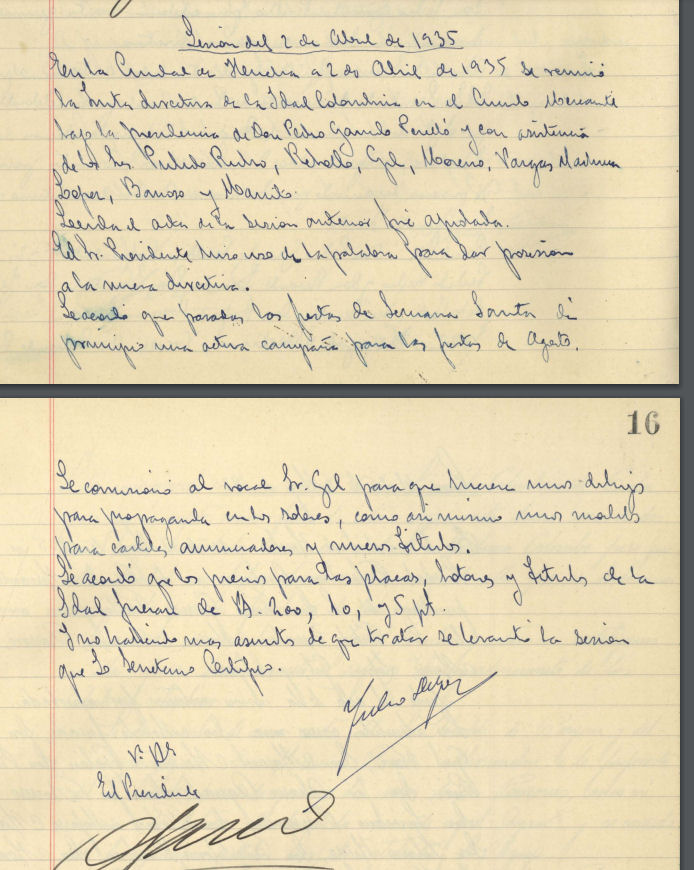 Sesión del 2 de Abril de 1935
En la Ciudad de Huelva a 2 de Abril de 1935 se reunió
la Junta directiva de la Ideal Colombina en el Circulo Mercantil
bajo la presidencia de Don Pedro Garrido Perelló y con asistencia
de los Srs. Pulido Rubio, Rebollo, Gil, Moreno, Vargas Machuca
Lopez, Barroso y
Leida el acta de la sesion anterior fué aprobada.
El Sr. Presidente hizo uso de la palabra para dar posesión
a la nueva directiva.
Se acordó que pasadas las fiestas de Semana Santa dé
principio una activa campaña para las fiestas de Agosto.
16
Se comisionó al vocal Sr. Gil para que hiciera unos dibujos
para propaganda en los solares, como asi mismo unos modelos
para carteles anunciadores y nuevos títulos.
Se acordó que los precios para las placas, botones y títulos de la
Idal fueran de 200, 10, y 5 pts.
Y no habiendo mas asuntos de que tratar se levantó la sesion
que Yo Secretario Certifico.
Julio
Vº Bº
El Presidente